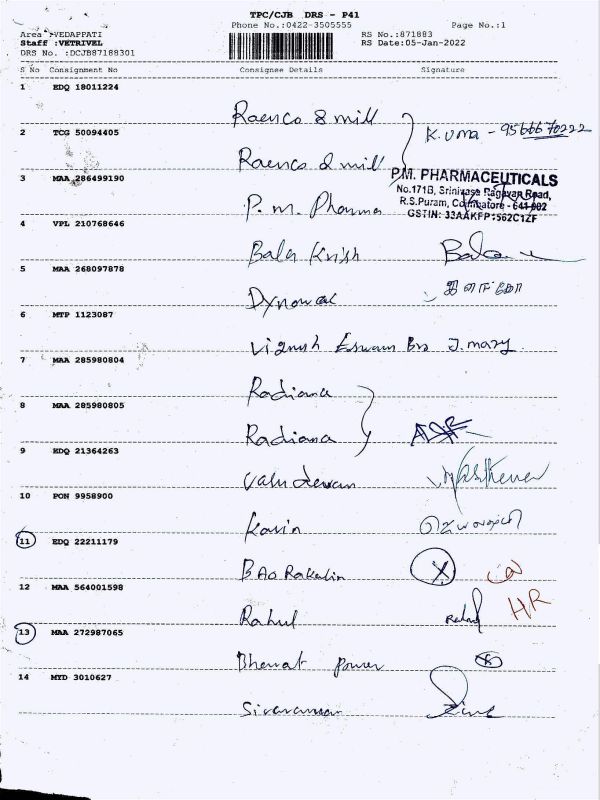 TPC/CJB DRS - P41
Phone No.:0422-3505555 Page No.:1
Area :VEDAPPATI RS No.:871883
Staff :VETRIVEL RS Date:05-Jan-2022
DRS No. :DCJB87188301
S No Consignment No Consignee Details Signature
1 EDQ 18011224
Raenco & mill
K. Uma - 9566670222
2 TCG 50094405
Raenco & mill
3 MAA 286499190
P.M. PHARMACEUTICALS
No.171B, Srinivasa Ragavan Road,
R.S.Puram, Coimbatore - 641 002
GSTIN: 33AAKFP1562C1ZF
P. m. Pharma
4 VPL 210768646
Bala Krish
5 MAA 268097878
6 MTP 1123087
Vignesh Eswara Bro J. mary
7 MAA 285980804
Radiana
8 MAA 285980805
Radiana
9 EDQ 21364263
10 PON 9958900
Kavin
11 EDQ 22211179
12 MAA 564001598
HR
Rahul Rahul
13 MAA 272987065
Bharat power
14 MYD 3010627
Sivaraman